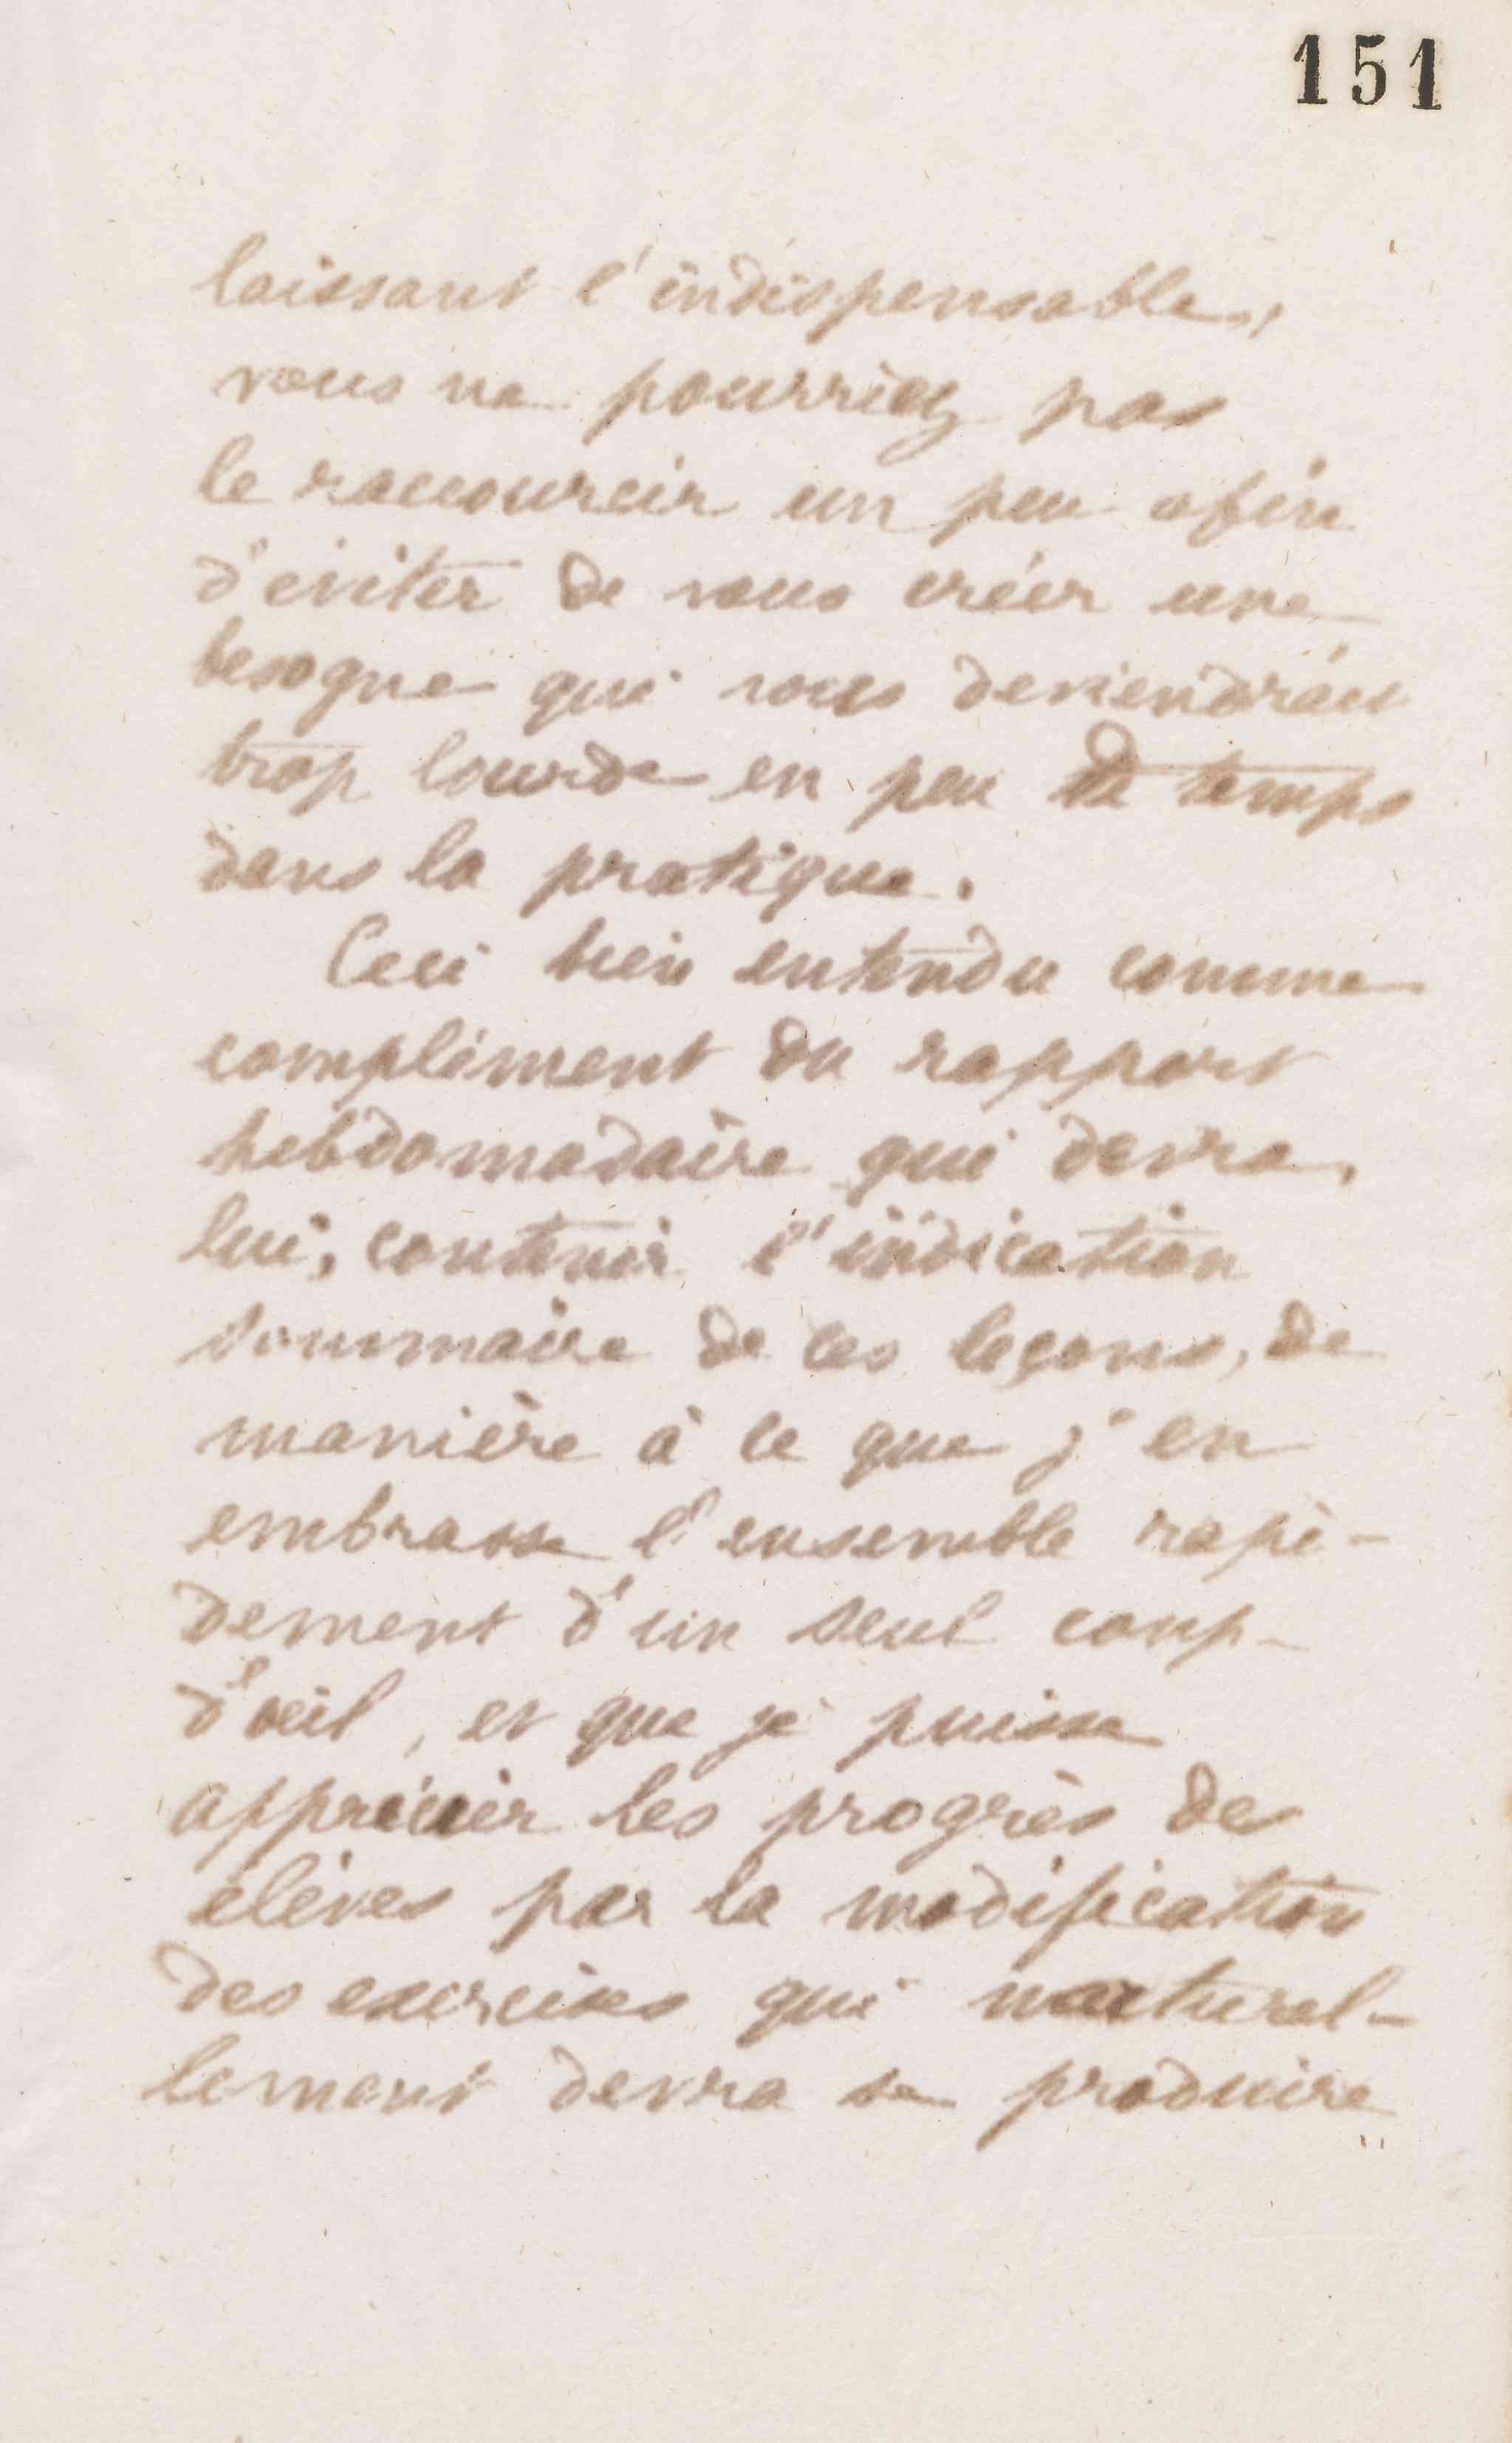 151
laissant l'indispensable,
vous ne pourriez pas
le raccourcir un peu afin
d'éviter de vous créer une
besogne qui vous deviendrait
trop lourde en peu de temps
dans la pratique.
Ceci bien entendu comme
complément du rapport
hebdomadaire qui devra,
lui, contenir l'indication
sommaire de ces leçons, de
manière à ce que j'en
embrasse l'ensemble rapi-
dement d'un seul coup-
d'œil, et que je puisse
apprécier les progrès des
élèves par la modification
des exercices qui naturel-
lement devra se produire